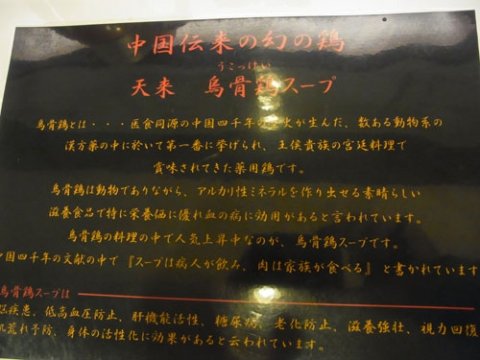 中国伝来の幻の鶏
うこっけい
天来 烏骨鶏スープ
烏骨鶏とは・・・医食同源の中国四千年の 火が生んだ、数ある動物系の
漢方薬の中に於いて第一番に挙げられ、王侯貴族の宮廷料理で
賞味されてきた薬用鶏です。
烏骨鶏は動物でありながら、アルカリ性ミネラルを作り出せる素晴らしい
滋養食品で特に栄養価に優れ血の病に効用があると言われています。
烏骨鶏の料理の中で人気上昇中なのが、烏骨鶏スープです。
中国四千年の文献の中で『スープは病人が飲み、肉は家族が食べる』と書かれています
烏骨鶏スープは
疾患、低高血圧防止、肝機能活性、糖尿病、老化防止、滋養強壮、視力回復
肌荒れ予防、身体の活性化に効果があると云われています。